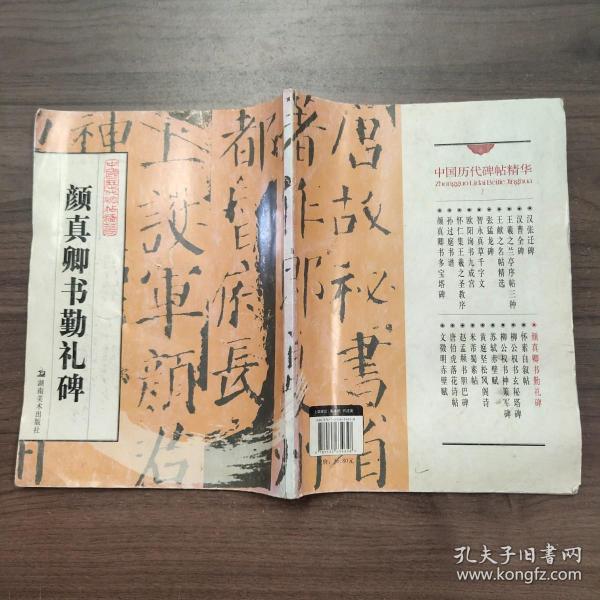 中国历代碑帖精华
颜真卿书勤礼碑
湖南美术出版社
神
著作郎
都督府長
上護軍顏
唐故秘書省
中国历代碑帖精华
Zhongguo Lidai Beitie Jinghua
汉张迁碑
汉曹全碑
王羲之兰亭序帖三种
王献之名帖精选
张猛龙碑
智永真草千字文
欧阳询书九成宫
怀仁集王羲之圣教序
孙过庭书谱
颜真卿书多宝塔碑
颜真卿书勤礼碑
怀素自叙帖
柳公权书玄秘塔碑
柳公权书神策军碑
苏轼赤壁赋
黄庭坚松风阁诗
米芾蜀素帖
赵孟頫书胆巴碑
唐伯虎落花诗帖
文徵明赤壁赋
孔夫子旧书网
www.kongfz.com